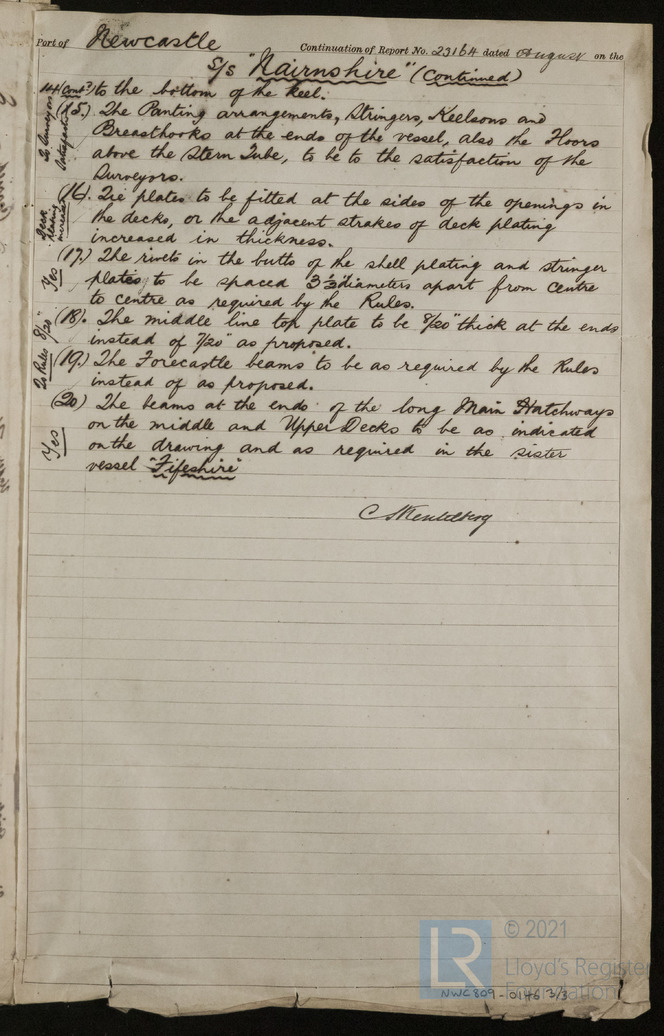 Port of Newcastle Continuation of Report No. 23164 dated August on the
S/S "Nairnshire" (Continued)
14 (Cont?) to the bottom of the keel.
(15.) The Panting arrangements, Stringers, Keelsons and
Breasthooks at the ends of the vessel, also the Floors
above the Stern Tube, to be to the satisfaction of the
Surveyors.
To Surveyors
Satisfaction
(16). Tie plates to be fitted at the sides of the openings in
the decks, or the adjacent strakes of deck plating
increased in thickness.
Deck
plating
increased
(17.) The rivets in the butts of the shell plating and stringer
plates to be spaced 3½ diameters apart from centre
to centre as required by the Rules.
Yes
(18). The middle line top plate to be 8/20" thick at the ends
instead of 7/20" as proposed.
8/20"
(19.) The Forecastle beams to be as required by the Rules
instead of as proposed.
To Rules
(20) The beams at the ends of the long Main Hatchways
on the middle and Upper Decks to be as indicated
on the drawing and as required in the sister
vessel "Fifeshire"
Yes
LR
© 2021
Lloyd's Register
Foundation
NWC809-0146 3/3